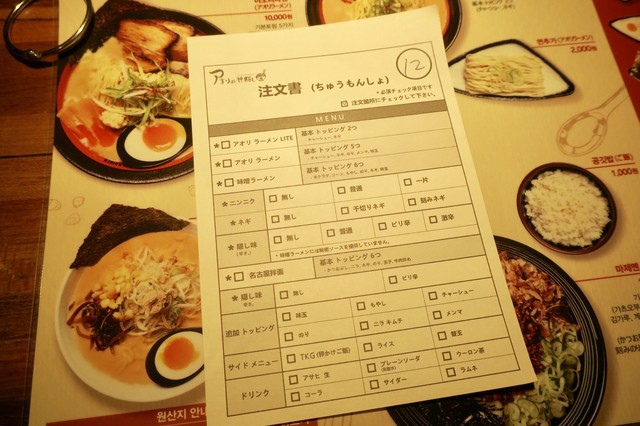 10,000원
기본토핑 5가지
(アオリラーメン)
(チャーシュー、ネギ)
면추가 (アオリラーメン)
2,000원
注文書 (ちゅうもんしょ)
12
*必須チェック項目です
☑ 注文箇所にチェックして下さい。
MENU
★ □ アオリ ラーメン LITE 基本 トッピング 2つ
★ □ アオリ ラーメン 基本 トッピング 5つ
★ □ 味噌ラーメン 基本 トッピング 6つ
★ ニンニク □ 無し □ 普通 □ 一片
★ ネギ □ 無し □ 千切りネギ □ 刻みネギ
★ 隠し味 □ 無し □ 普通 □ ピリ辛 □ 激辛
★ □ 名古屋拌麺 基本 トッピング 6つ
★ 隠し味 □ 無し □ ピリ辛
追加 トッピング □ 味玉 □ もやし □ チャーシュー
□ のり □ ニラ キムチ □ メンマ
サイド メニュー □ TKG (卵かけご飯) □ ライス □ 替玉
ドリンク □ アサヒ 生 □ プレーンソーダ □ ウーロン茶
□ コーラ □ サイダー □ ラムネ
공깃밥 (ご飯)
1,000원
마제멘
(기초오부
김가루,
(かつお
刻みのり
원산지 안내